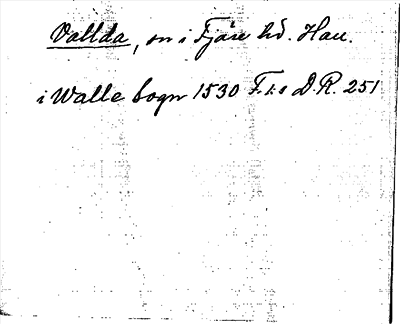 Vallda, sn i Fjäre hd. Hall.
i Walle sogn 1530 F. I:s D.R. 251